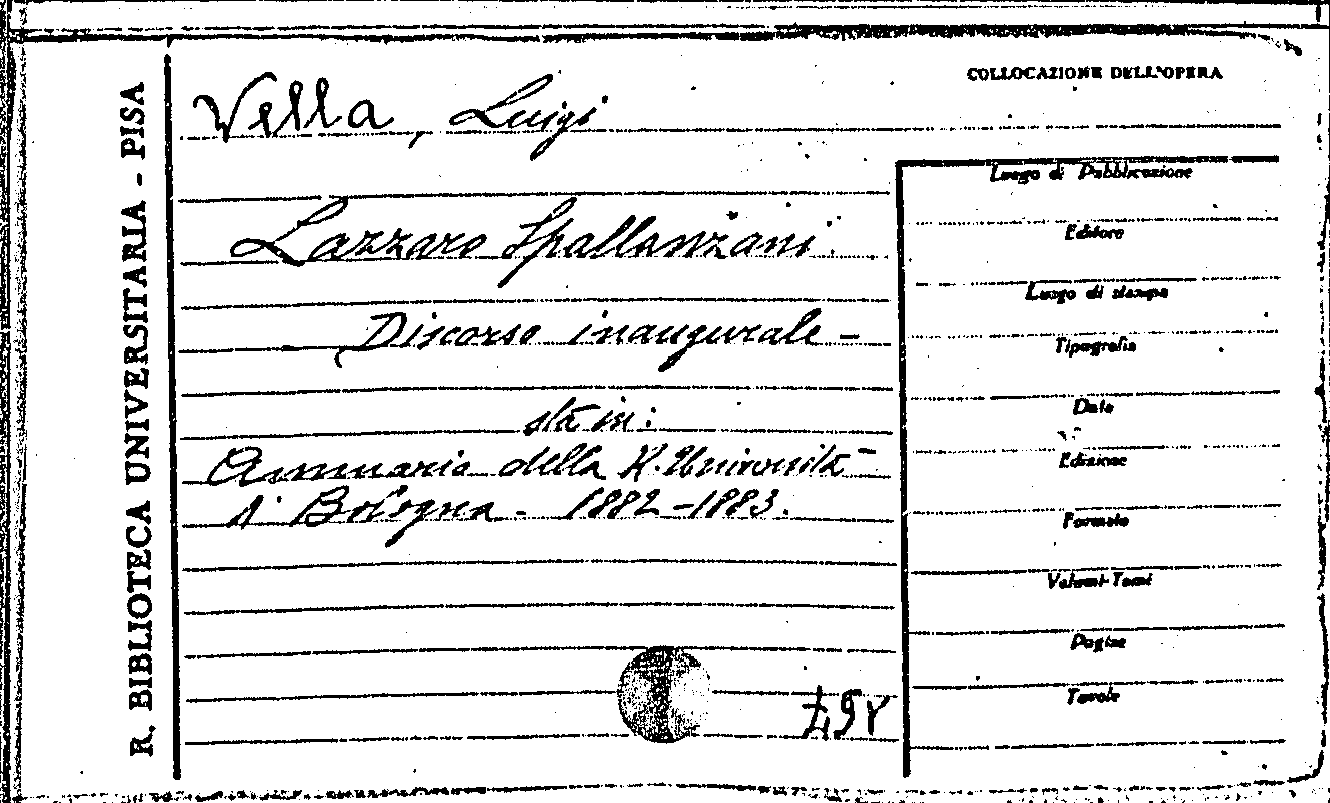 R. BIBLIOTECA UNIVERSITARIA - PISA
COLLOCAZIONE DELL'OPERA
Vella, Luigi
Lazzaro Spallanzani.
Discorso inaugurale -
sta in:
Annuario della R. Università
di Bologna - 1882-1883.
Luogo di Pubblicazione
Editore
Luogo di stampa
Tipografia
Data
Edizione
Formato
Volumi-Tomi
Pagine
Tavole